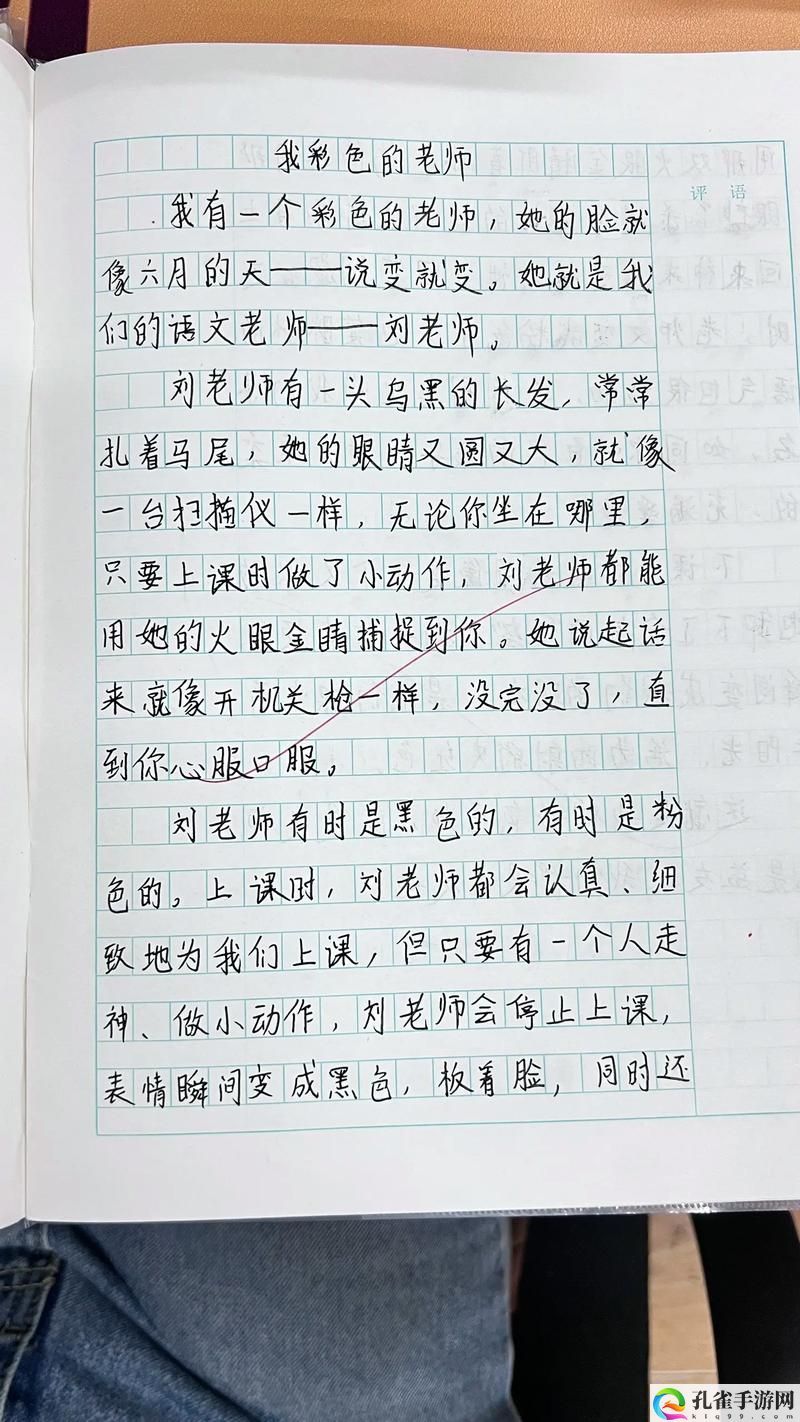 我彩色的老师
评语
我有一个彩色的老师，她的脸就
像六月的天——说变就变。她就是我
们的语文老师——刘老师。
刘老师有一头乌黑的长发，常常
扎着马尾，她的眼睛又圆又大，就像
一台扫描仪一样，无论你坐在哪里，
只要上课时做了小动作，刘老师都能
用她的火眼金睛捕捉到你。她说起话
来就像开机关枪一样，没完没了，直
到你心服口服。
刘老师有时是黑色的，有时是粉
色的。上课时，刘老师都会认真、细
致地为我们上课，但只要有一个人走
神、做小动作，刘老师会停止上课，
表情瞬间变成黑色，板着脸，同时还
孔雀手游网
ktq99.com